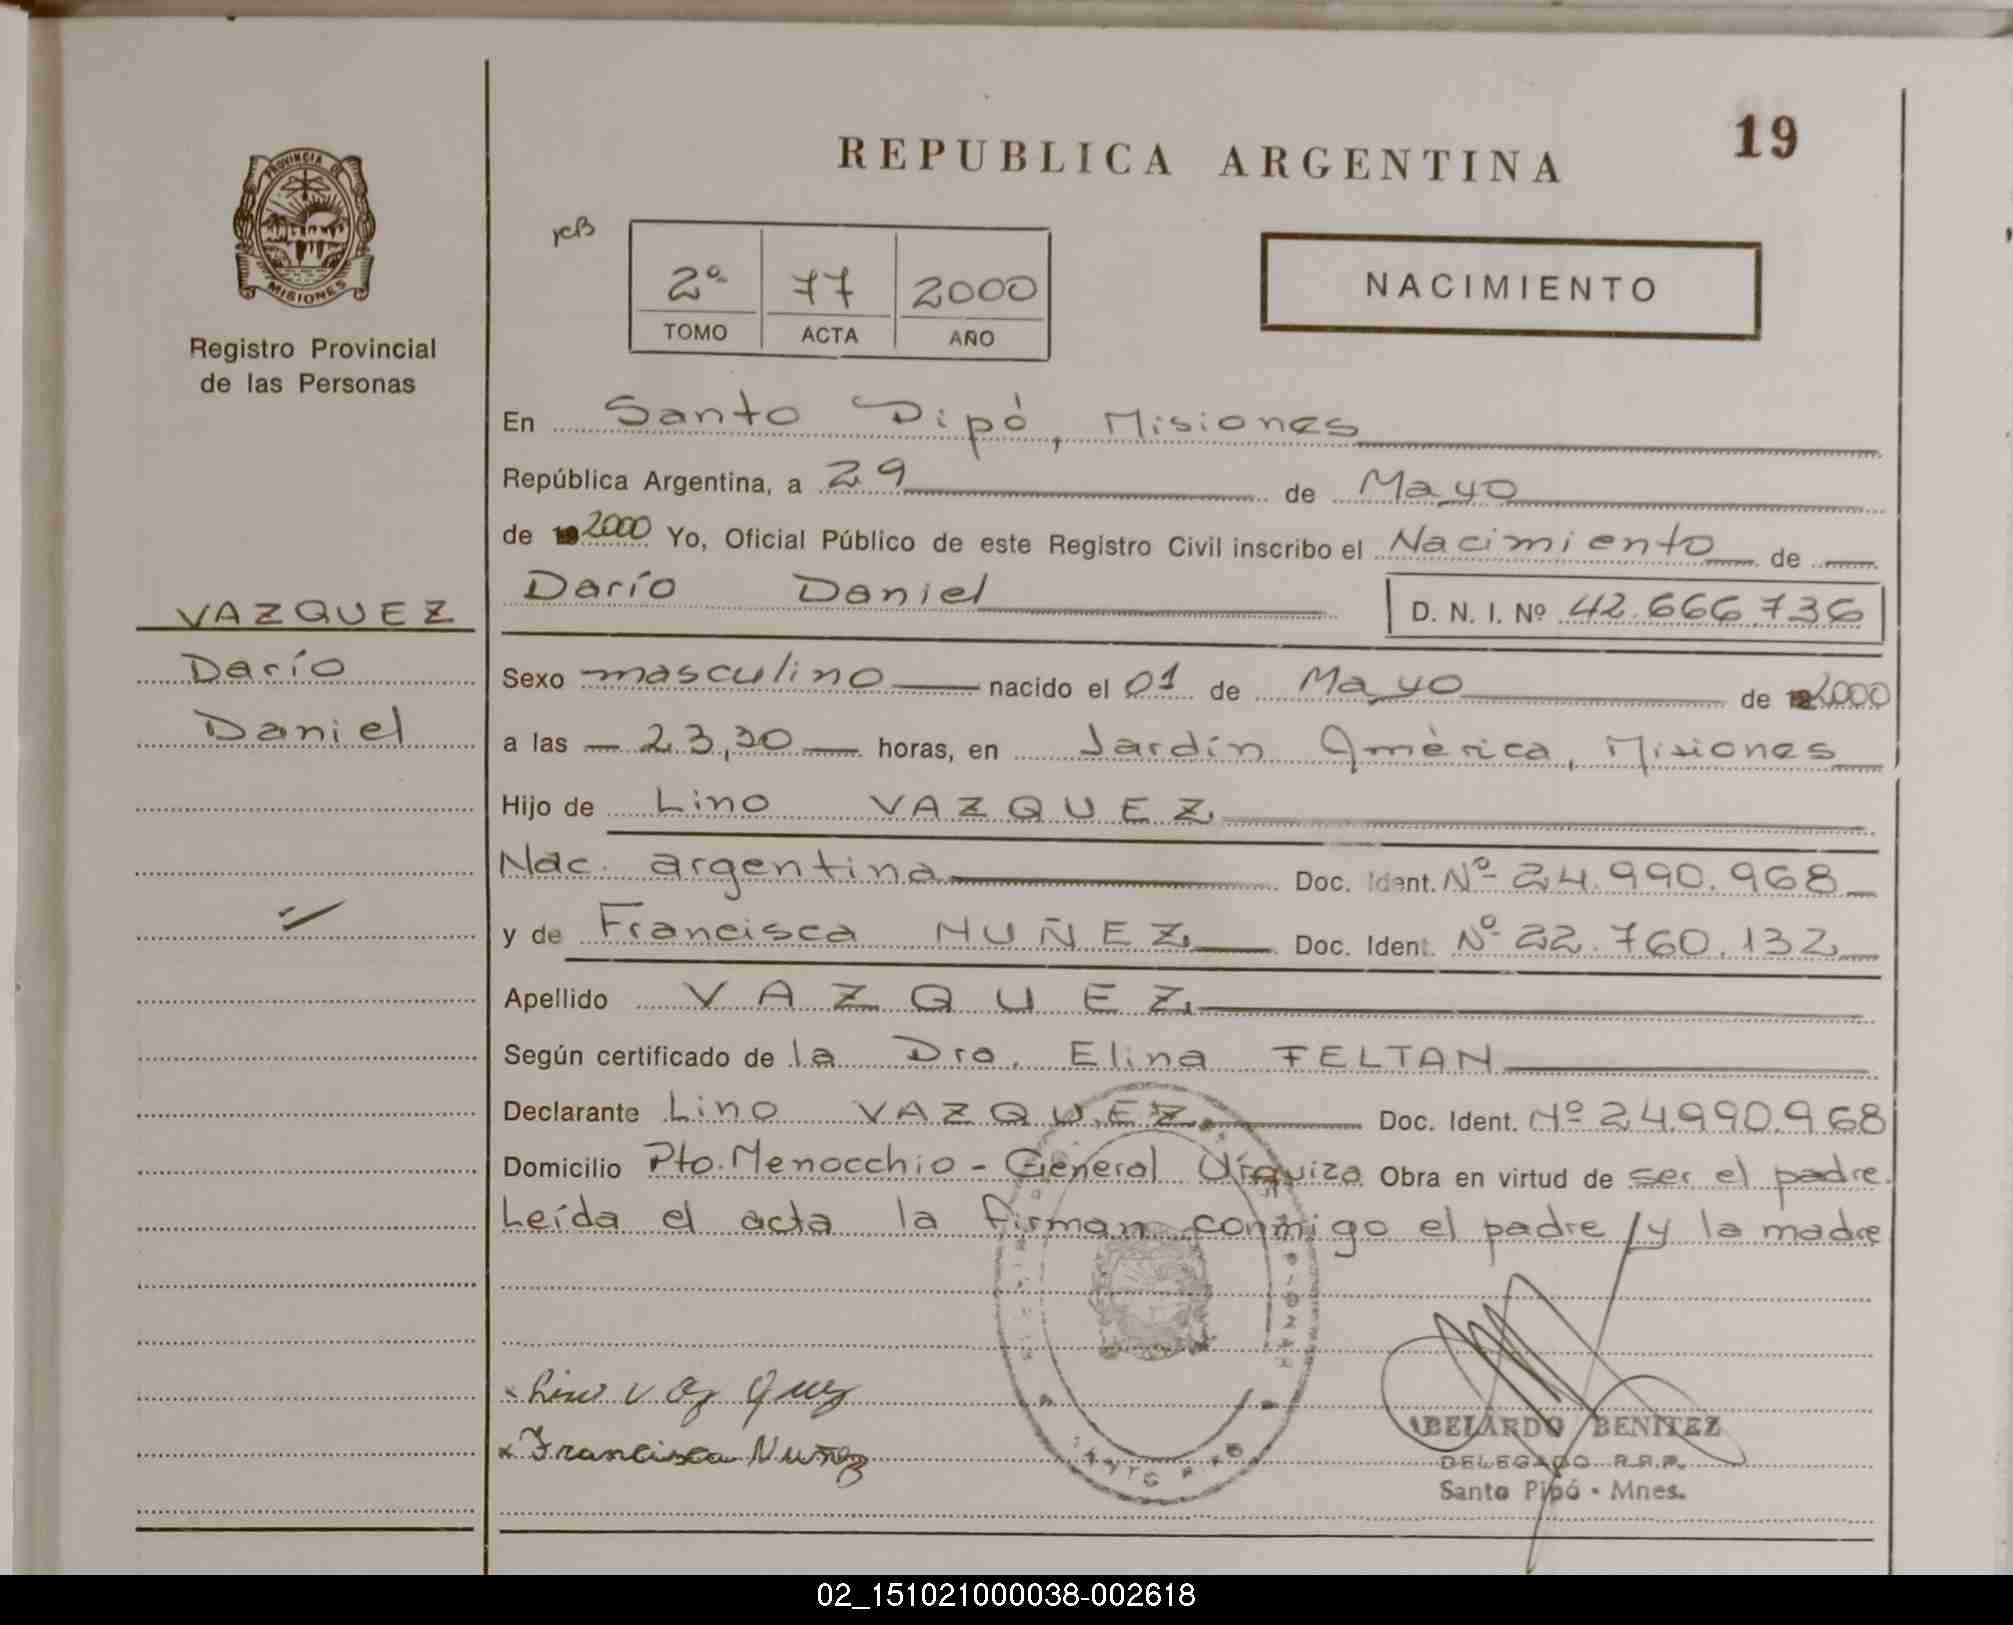 REPUBLICA ARGENTINA
19
PROVINCIA DE
MISIONES
Registro Provincial
de las Personas
2º 77 2000
TOMO ACTA AÑO
NACIMIENTO
En Santo Pipó, Misiones
República Argentina, a 29 de Mayo
de 19 2000 Yo, Oficial Público de este Registro Civil inscribo el Nacimiento de
Darío Daniel D. N. I. Nº 42.666.736
VAZQUEZ
Darío
Daniel
Sexo masculino nacido el 01 de Mayo de 19 2000
a las 23,30 horas, en Jardín América, Misiones
Hijo de Lino VAZQUEZ
Nac. argentina Doc. Ident. Nº 24.990.968
y de Francisca NUÑEZ Doc. Ident. Nº 22.760.132
Apellido VAZQUEZ
Según certificado de la Dra. Elina FELTAN
Declarante Lino VAZQUEZ Doc. Ident. Nº 24.990.968
Domicilio Pto. Menocchio - General Urquiza Obra en virtud de ser el padre.
Leída el acta la firman conmigo el padre / y la madre
x Lino Vaz Quez
x Francisca Nuñez
SANTO PIPO
ABELARDO BENITEZ
DELEGADO R.R.P.
Santo Pipó - Mnes.
02_151021000038-002618